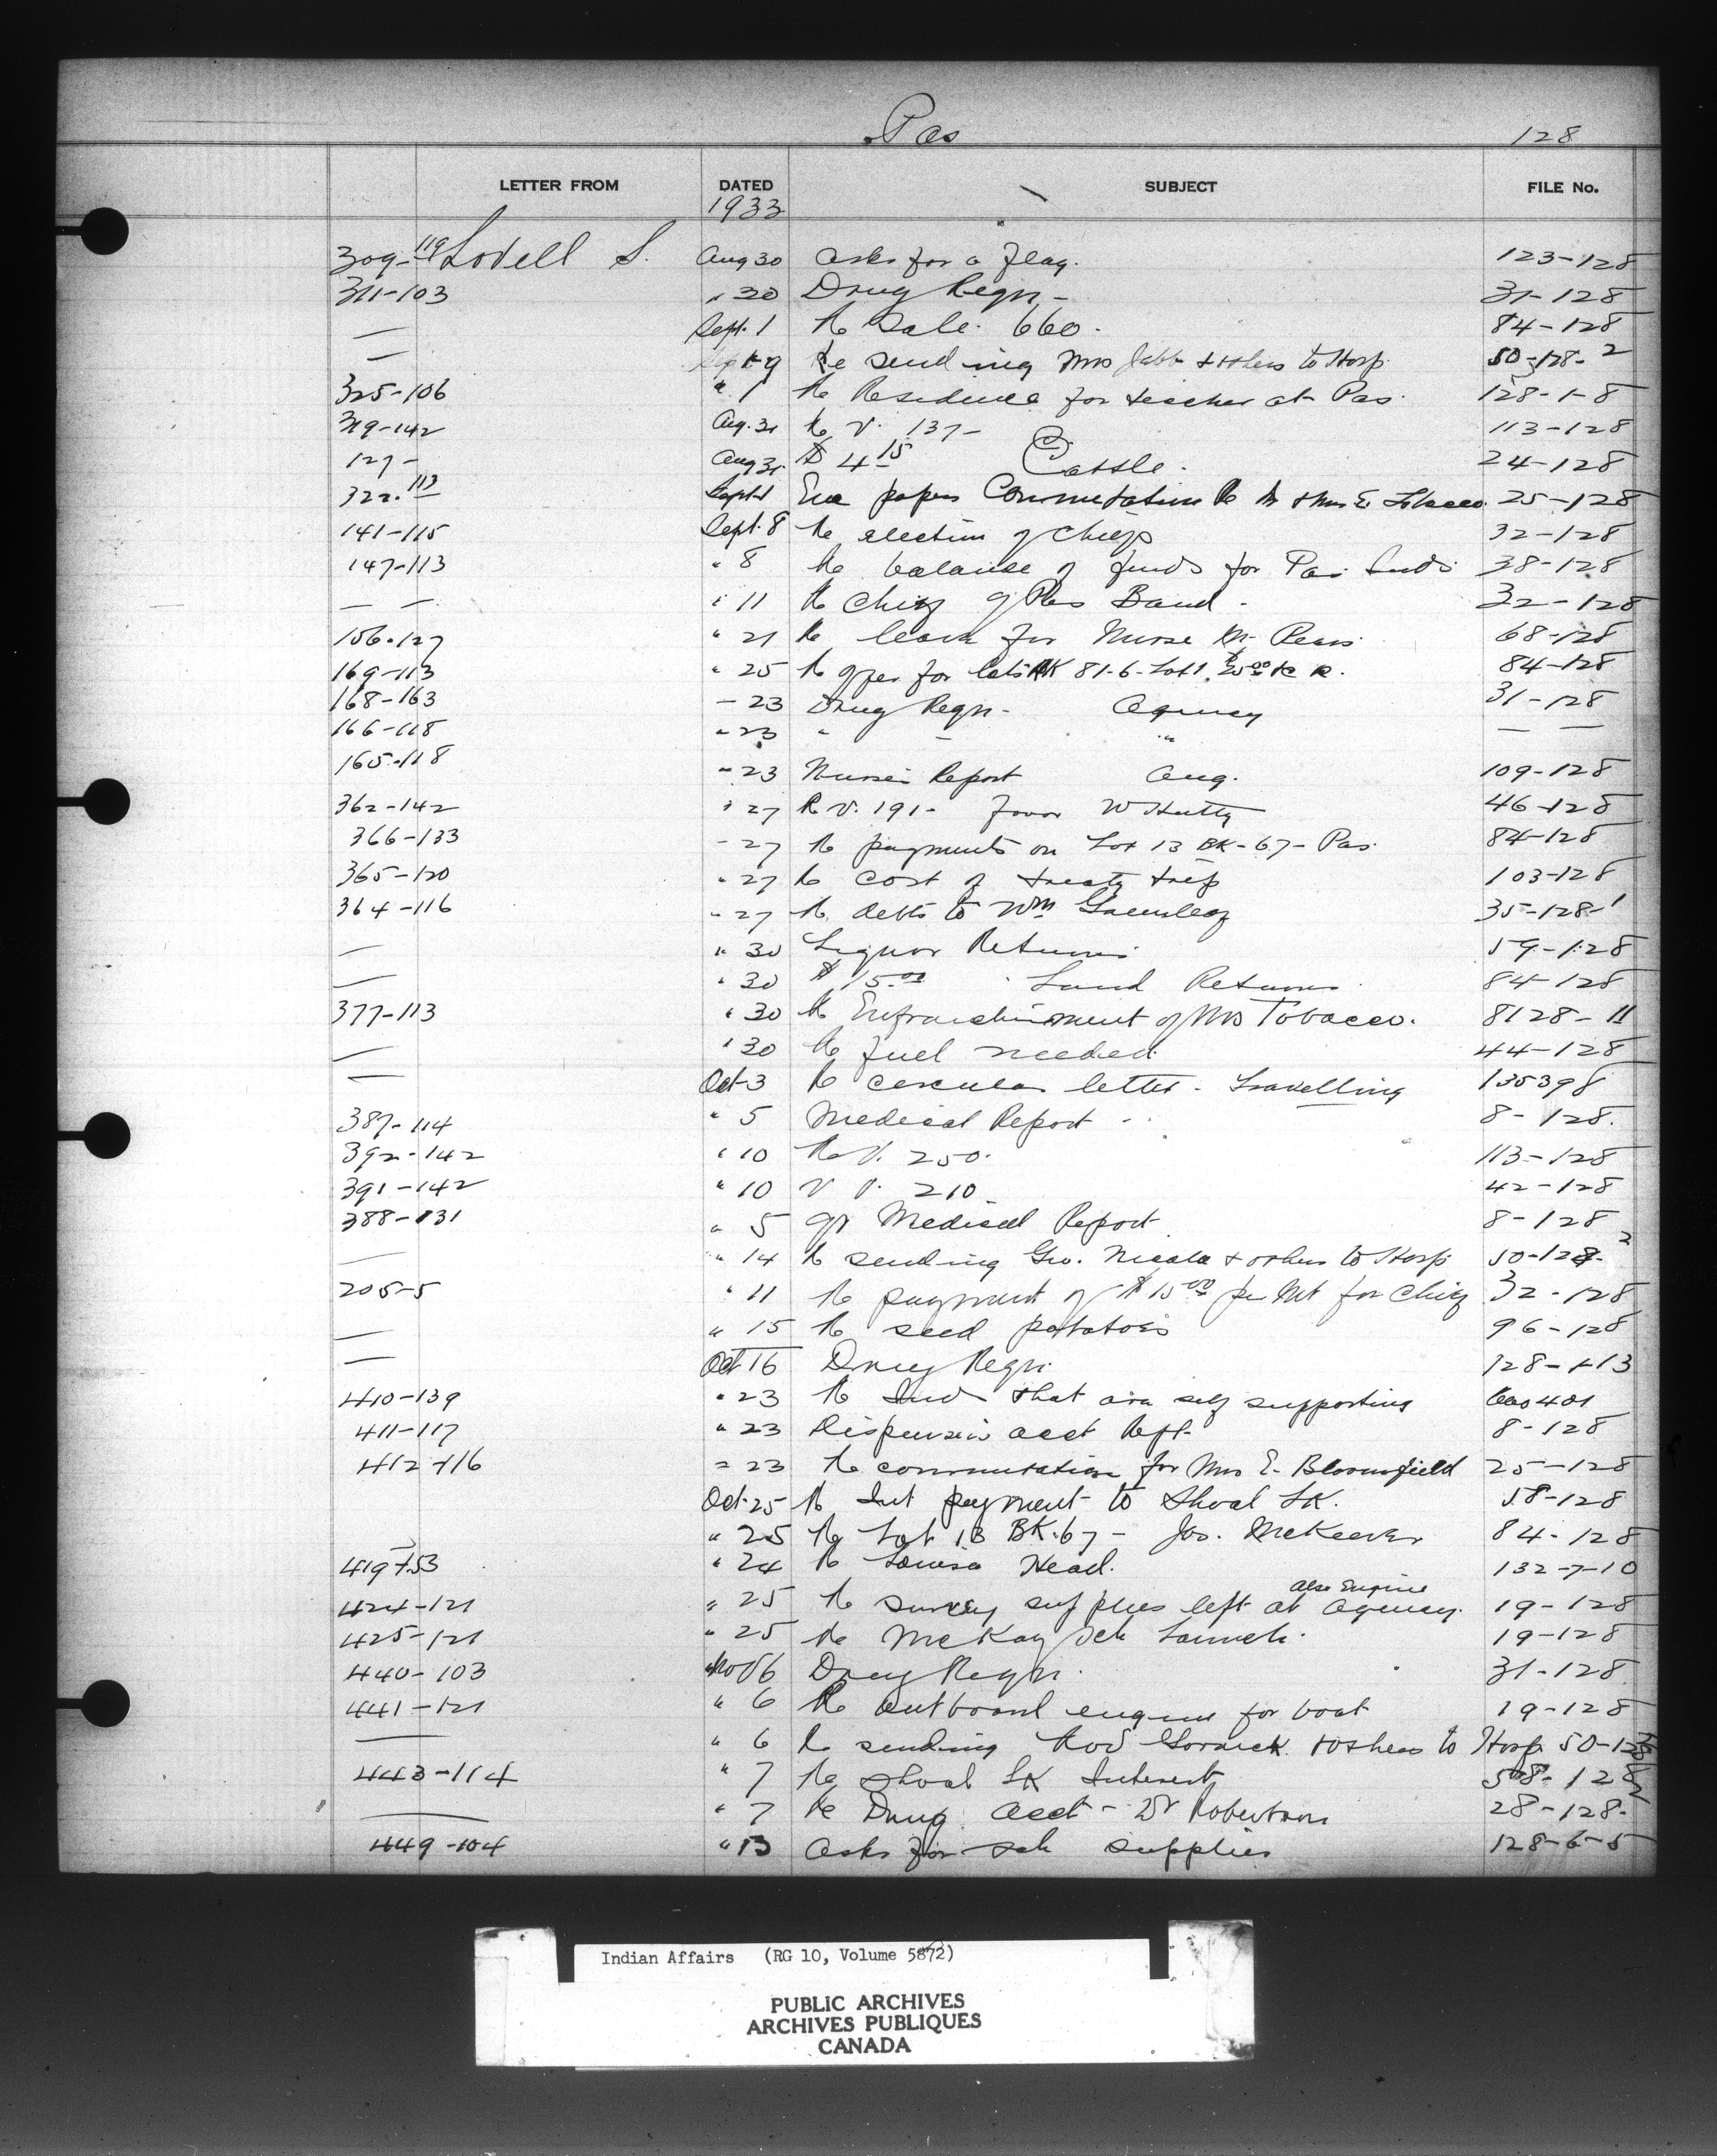 Pas 128
LETTER FROM DATED SUBJECT FILE No.
1933
309-119 Lovell S. Aug 30 asks for a flag. 123-128
311-103 " 30 Drug Reqn - 31-128
— Sept. 1 Re Sale. 660. 84-128
— Re sending Mrs & others to Hosp. 50-128-2
325-106 " 1 Re Residence for teacher at Pas. 128-1-8
319-142 Aug. 31 Re V. 137- 113-128
127- Aug 31 $4.15 Cattle. 24-128
322-113 Sept 1 Enc papers Commutation Re Mr & Mrs E. Tobacco 25-128
141-115 Sept. 8 Re election of Chiefs 32-128
147-113 " 8 Re balance of funds for Pas Inds 38-128
— — " 11 Re Chief of Pas Band - 32-128
156-127 " 21 Re leave for Nurse 68-128
169-113 " 25 Re offer for lots BK 81-6-Lot 1. 84-128
168-163 - 23 Drug Reqn - Agency 31-128
166-118 " 23 " - " — —
165-118 " 23 Nurses Report Aug. 109-128
362-142 " 27 R.V. 191- favor W Hutty 46-128
366-133 - 27 Re payments on Lot 13 BK-67- Pas. 84-128
365-120 " 27 Re cost of treaty trip 103-128
364-116 " 27 Re debts to Wm Greenleaf 35-128-1
— " 30 Liquor Returns 59-128
— " 30 $15.00 Land Returns 84-128
377-113 " 30 Re Enfranchisement of Mrs Tobacco. 8128-11
— " 30 Re fuel needed. 44-128
— Oct 3 Re circular letter - Travelling 135398
387-114 " 5 Medical Report - 8-128.
392-142 " 10 Re V. 250. 113-128
391-142 " 10 V V. 210 42-128
388-131 " 5 Medical Report 8-128
— " 14 Re sending Geo. & others to Hosp 50-128-2
205-5 " 11 Re payment of $15.00 per Mt for Chief 32-128
— " 15 Re seed potatoes 96-128
— Oct 16 Drug Reqn. 128-1-13
410-139 " 23 Re Inds that are self supporting 401
411-117 " 23 Dispensing acct 8-128
412-116 " 23 Re commutation for Mrs E. Bloomfield 25-128
Oct. 25 Re Int payment to Shoal LK. 58-128
— " 25 Re Lot 13 BK.67 - Jos. McKeever 84-128
419-153 " 24 Re Louisa Head. 132-7-10
also Engine
424-121 " 25 Re survey supplies left at Agency. 19-128
425-121 " 25 Re McKay Sch Launch. 19-128
440-103 Nov 6 Drug Reqn. 31-128
441-121 " 6 Re outboard engine for boat 19-128
— " 6 Re sending & others to Hosp 50-128
443-114 " 7 Re Shoal LK Interest 58-128
— " 7 Re Drug Acct - Dr Robertson 28-128-
449-104 " 13 Asks for sch supplies 128-6-5
Indian Affairs (RG 10, Volume 5872)
PUBLIC ARCHIVES
ARCHIVES PUBLIQUES
CANADA